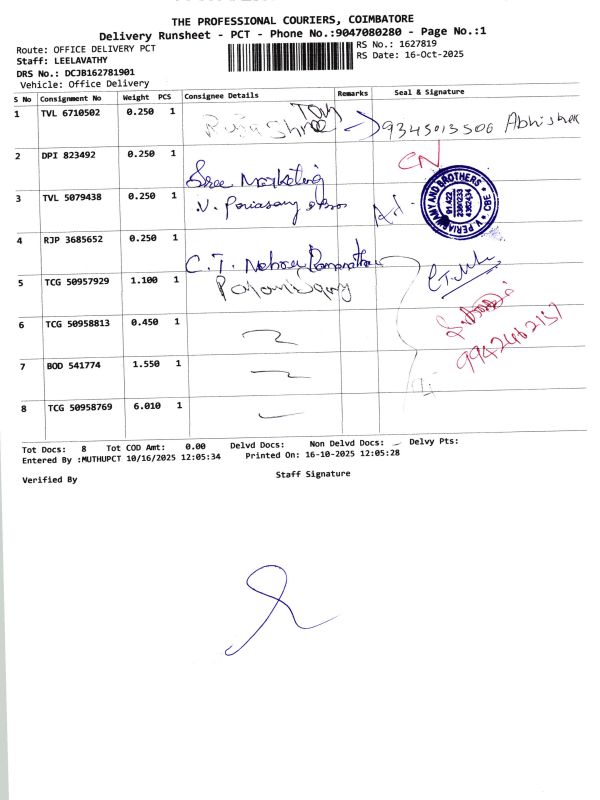 THE PROFESSIONAL COURIERS, COIMBATORE
Delivery Runsheet - PCT - Phone No.:9047080280 - Page No.:1
Route: OFFICE DELIVERY PCT
RS No.: 1627819
Staff: LEELAVATHY
RS Date: 16-Oct-2025
DRS No.: DCJB162781901
Vehicle: Office Delivery
S No Consignment No Weight PCS Consignee Details Remarks Seal & Signature
1 TVL 6710502 0.250 1 9345013506 Abhishek
2 DPI 823492 0.250 1 Sree Marketing CN
3 TVL 5079438 0.250 1 V. Periasamy & Bros
V. PERIASWAMY AND BROTHERS * CBE
4 RJP 3685652 0.250 1 C.T. Nehru
5 TCG 50957929 1.100 1
6 TCG 50958813 0.450 1 9942462137
7 BOD 541774 1.550 1
8 TCG 50958769 6.010 1
Tot Docs: 8 Tot COD Amt: 0.00 Delvd Docs: Non Delvd Docs: Delvy Pts:
Entered By :MUTHUPCT 10/16/2025 12:05:34 Printed On: 16-10-2025 12:05:28
Verified By Staff Signature